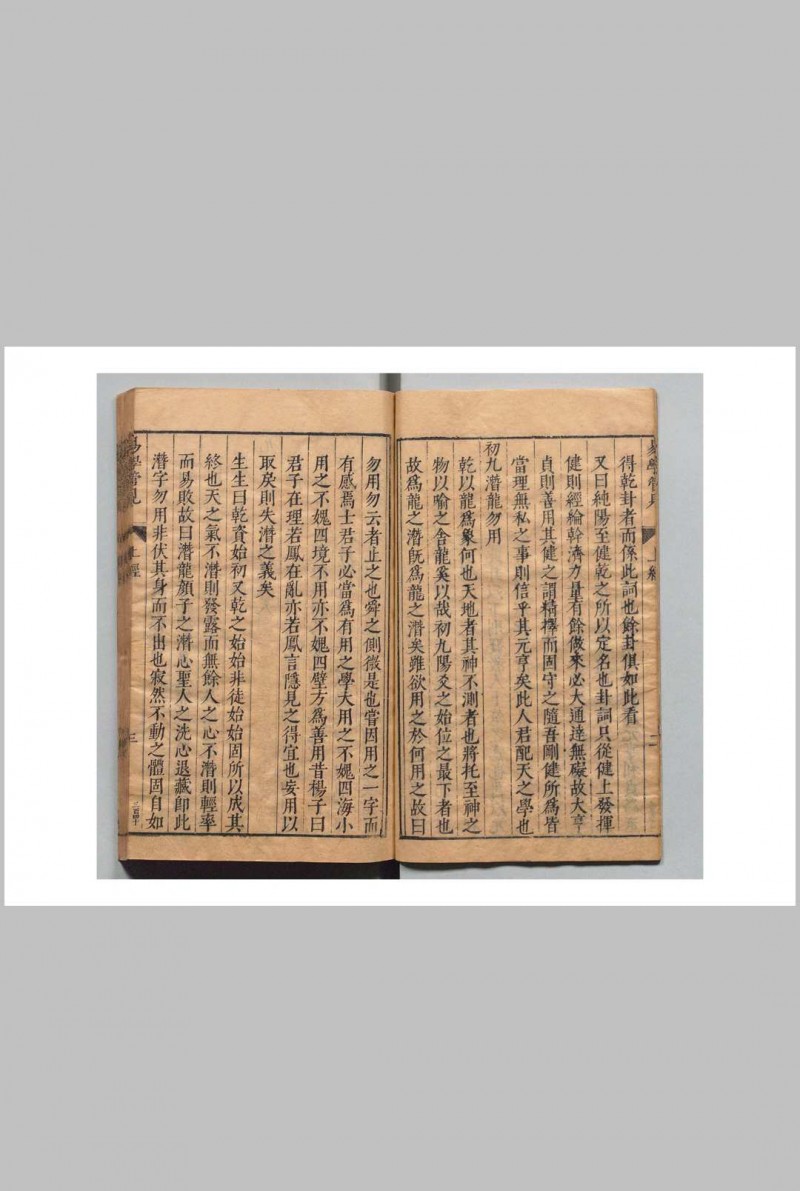 得乾卦者而係此詞也餘卦俱如此看
又曰純陽至健乾之所以定名也卦詞只從健上發揮
健則經綸幹濟力量有餘做來必大通達無礙故大亨
貞則善用其健之謂精擇而固守之隨吾剛健所爲皆
當理無私之事則信乎其元亨矣此人君配天之學也
初九潛龍勿用
乾以龍爲象何也天地者其神不測者也將托至神之
物以喻之舍龍奚以哉初九陽爻之始位之最下者也
故爲龍之潛旣爲龍之潛矣雖欲用之於何用之故曰
勿用勿云者止之也舜之側微是也嘗因用之一字而
有感焉士君子必當爲有用之學大用之不媿四海小
用之不媿四境不用亦不媿四壁方爲善用昔楊子曰
君子在理若鳳在亂亦若鳳言隱見之得宜也妄用以
取矣則失潛之義矣
生生曰乾資始初又乾之始始非徒始始固所以成其
終也天之氣不潛則發露而無餘人之心不潛則輕率
而易敗故曰潛龍顏子之潛心聖人之洗心退藏卽此
潛字勿用非伏其身而不出也寂然不動之體固自如
易學管見
上經
三
二百四十
易學管見
上經
二